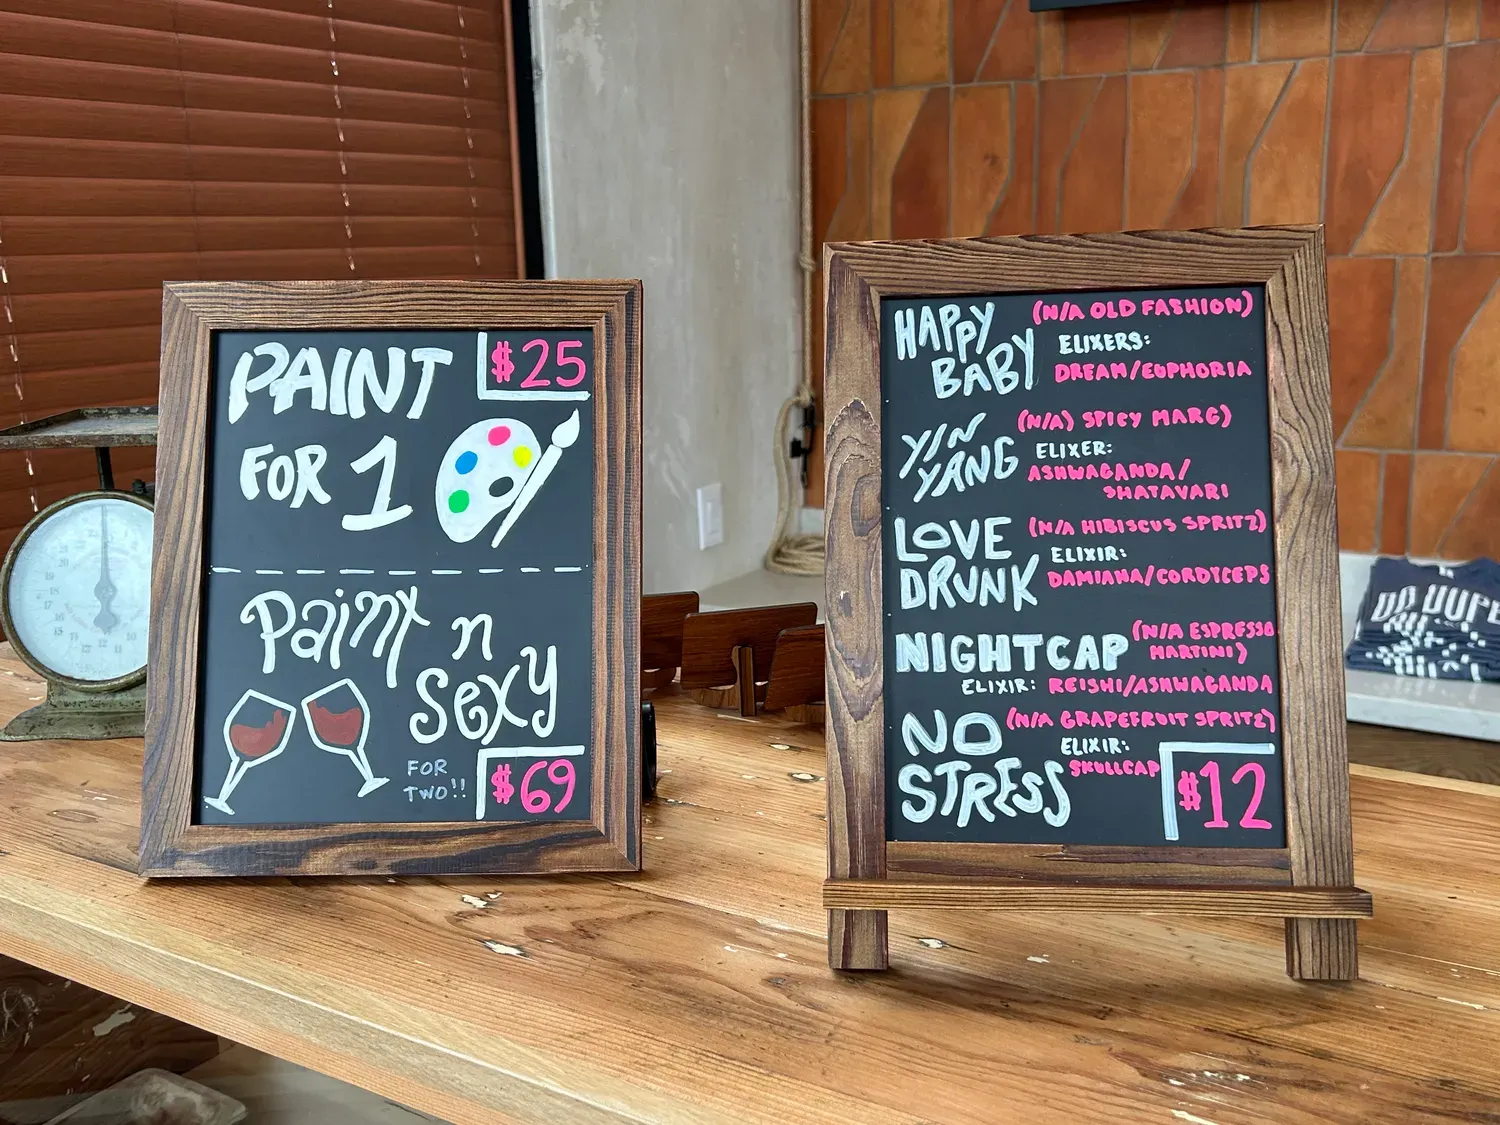 PAINT
$25
FOR 1
Paint n
Sexy
FOR
TWO!!
$69
HAPPY
BABY
(N/A OLD FASHION)
ELIXERS:
DREAM/EUPHORIA
YIN
YANG
(N/A) SPICY MARG)
ELIXER:
ASHWAGANDA/
SHATAVARI
LOVE
DRUNK
(N/A HIBISCUS SPRITZ)
ELIXIR:
DAMIANA/CORDYCEPS
NIGHTCAP
(N/A ESPRESSO
MARTINI)
ELIXIR: REISHI/ASHWAGANDA
NO
STRESS
(N/A GRAPEFRUIT SPRITZ)
ELIXIR:
SKULLCAP
$12